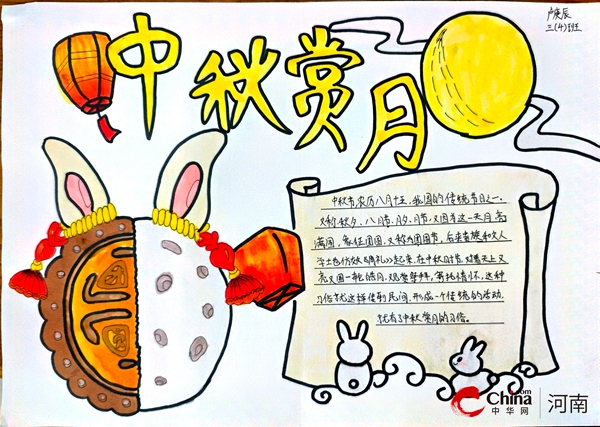 卢庚辰
三(4)班
中秋赏月
中秋节,农历八月十五,我国的传统节日之一。
又称秋夕、八月节、月夕、月节,又因为这一天月亮
满圆,象征团圆,又称为团圆节,后来贵族和文人
学士也仿效《周礼》起来,在中秋时节,对着天上又
亮又圆一轮皓月,观赏祭拜,寄托情怀,这种
习俗就这样传到民间,形成一个传统的活动,
就有了中秋赏月的习俗。
China.com
中华网
河南